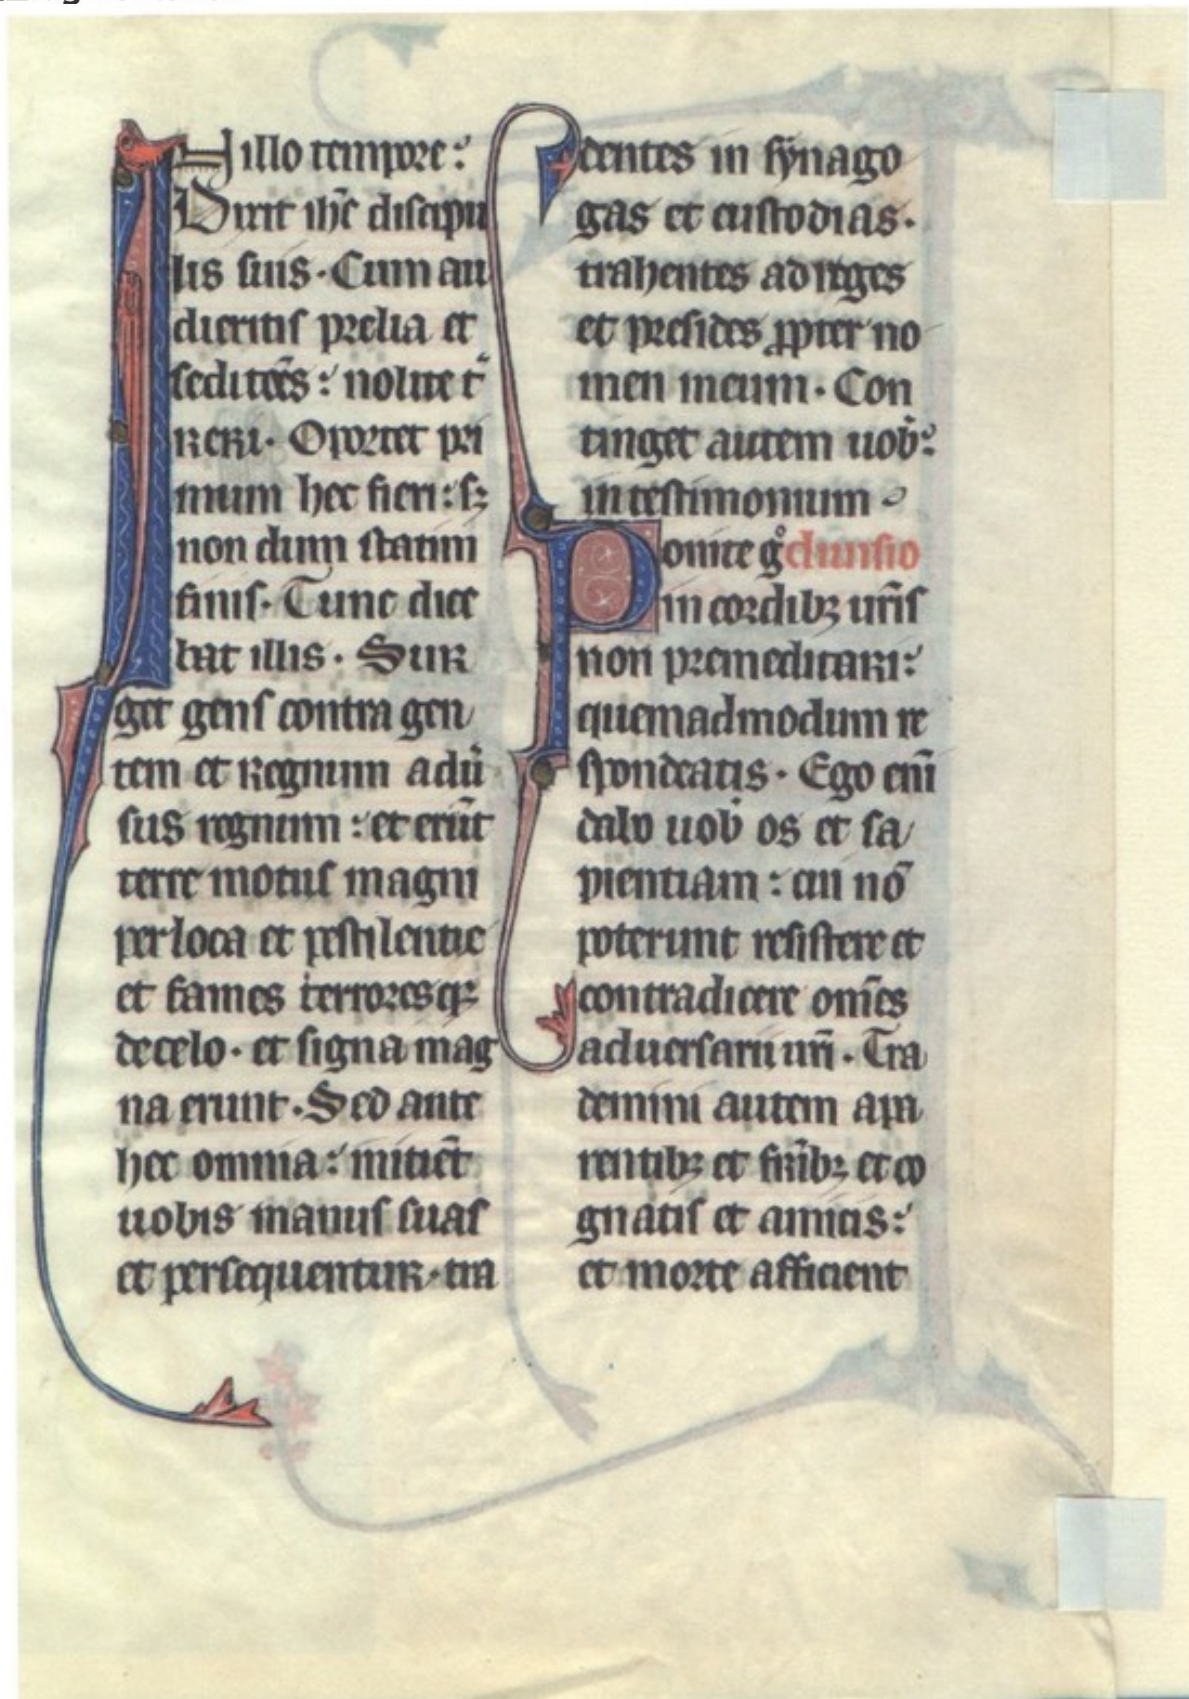 IN illo tempore:
Dixit ihc̄ discipu
lis suis. Cum au
dieritis prelia et
seditōēs: nolite t̄
reri. Oportet pri
mum hec fieri: sꝫ
non dum statim
finis. Tunc dice
bat illis. Sur
get gens contra gen
tem et regnum adu᷑
sus regnum: et erūt
terre motus magni
per loca et pestilentie
et fames terroresqꝫ
de celo. et signa mag
na erunt. Sed ante
hec omnia: mitiēt
uobis manus suas
et persequentur. tra
dentes in synago
gas et custodias.
trahentes ad reges
et presides ꝓpter no
men meum. Con
tinget autem uob᷑:
in testimonium
Ponite gͦ diuisio
in cordibꝫ ur̄is
non premeditari:
quemadmodum re
spondeatis. Ego eni̅
dabo uob᷑ os et sa
pientiam: cui nō
poterunt resistere et
contradicere om̄es
aduersarii ur̄i. Tra
demini autem a pa
rentibꝫ et fr̄ibꝫ et co
gnatis et amicis:
et morte afficient